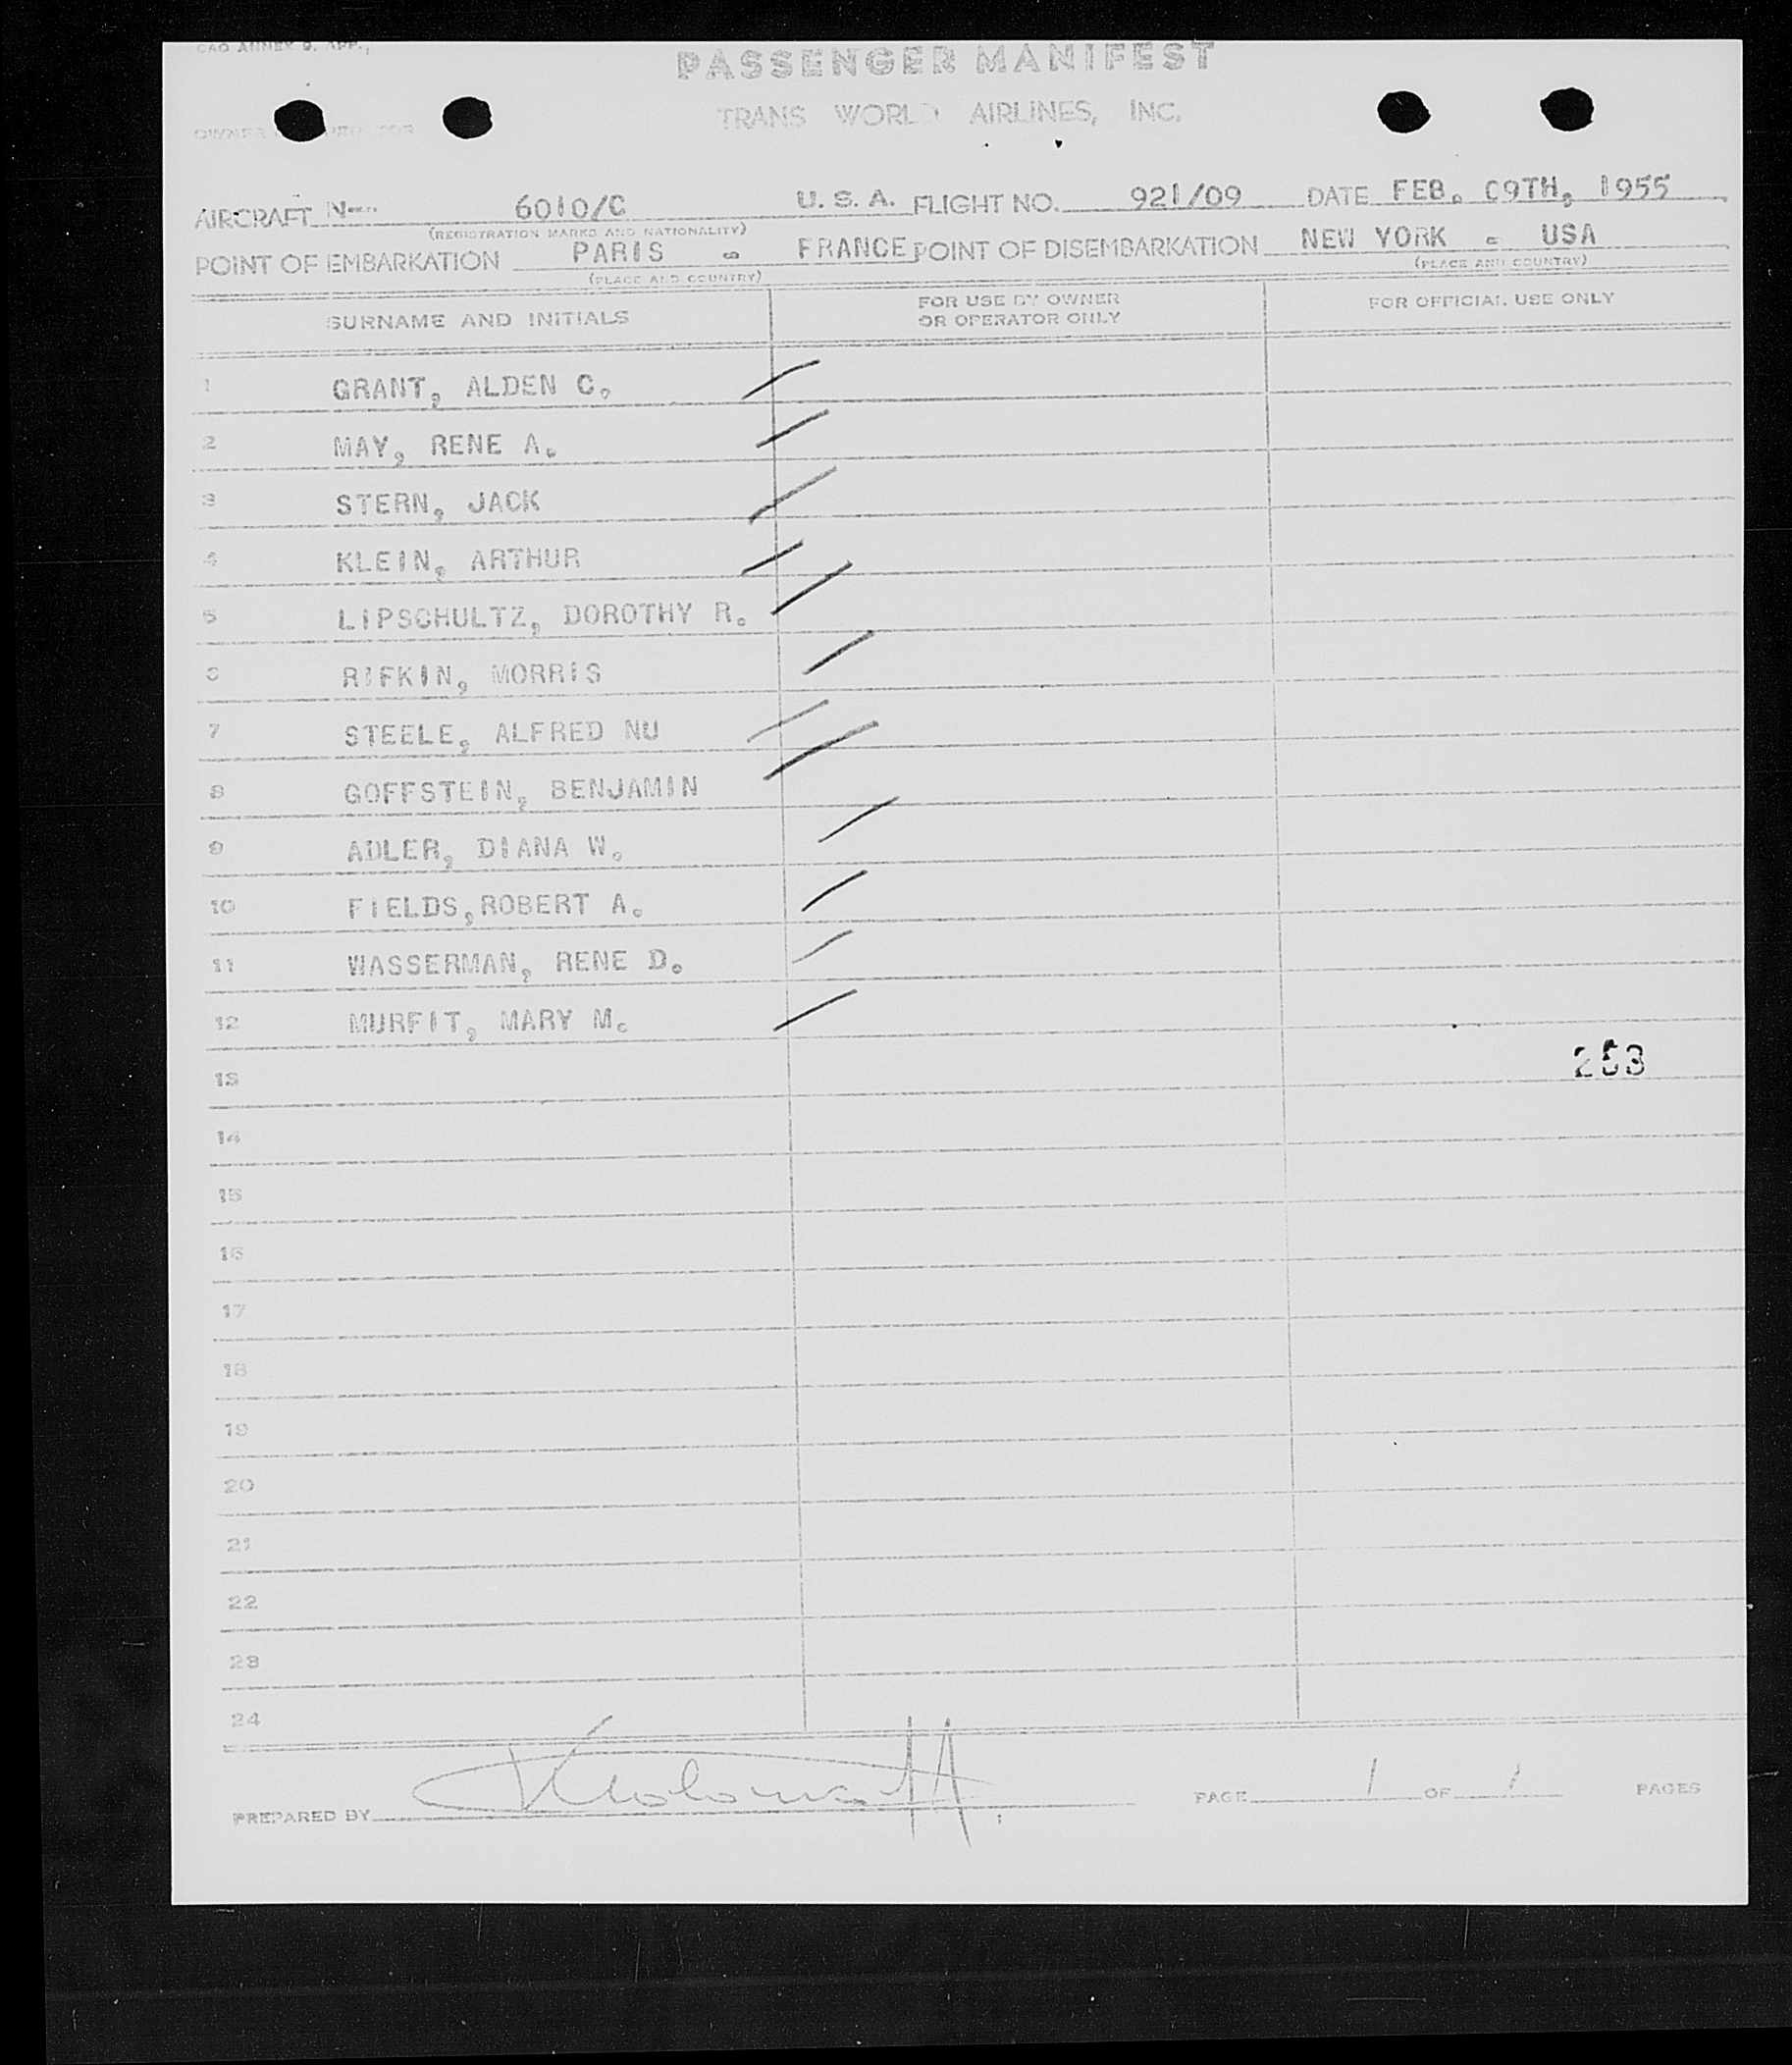 CAO ANNEX 9, APP.,
PASSENGER MANIFEST
TRANS WORLD AIRLINES, INC.
OWNER
AIRCRAFT N-- 6010/C U. S. A. FLIGHT NO. 921/09 DATE FEB. 09TH, 1955
(REGISTRATION MARKS AND NATIONALITY)
POINT OF EMBARKATION PARIS - FRANCE POINT OF DISEMBARKATION NEW YORK - USA
(PLACE AND COUNTRY) (PLACE AND COUNTRY)
SURNAME AND INITIALS FOR USE BY OWNER OR OPERATOR ONLY FOR OFFICIAL USE ONLY
1 GRANT, ALDEN C.
2 MAY, RENE A.
3 STERN, JACK
4 KLEIN, ARTHUR
5 LIPSCHULTZ, DOROTHY R.
6 RIFKIN, MORRIS
7 STEELE, ALFRED NU
8 GOFFSTEIN, BENJAMIN
9 ADLER, DIANA W.
10 FIELDS,ROBERT A.
11 WASSERMAN, RENE D.
12 MURFIT, MARY M.
13 253
14
15
16
17
18
19
20
21
22
23
24
PREPARED BY PAGE 1 OF 1 PAGES